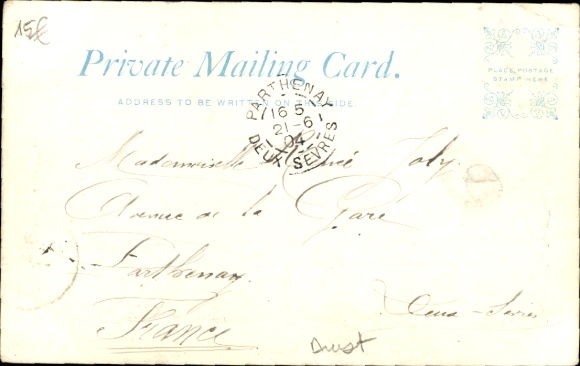 15€
Private Mailing Card.
ADDRESS TO BE WRITTEN ON THIS SIDE.
PLACE POSTAGE
STAMP HERE
PARTHENAY
16 5
21-6
04
DEUX SÈVRES
Mademoiselle Joly.
Avenue de la Gare
Parthenay
Deux-Sèvres
France